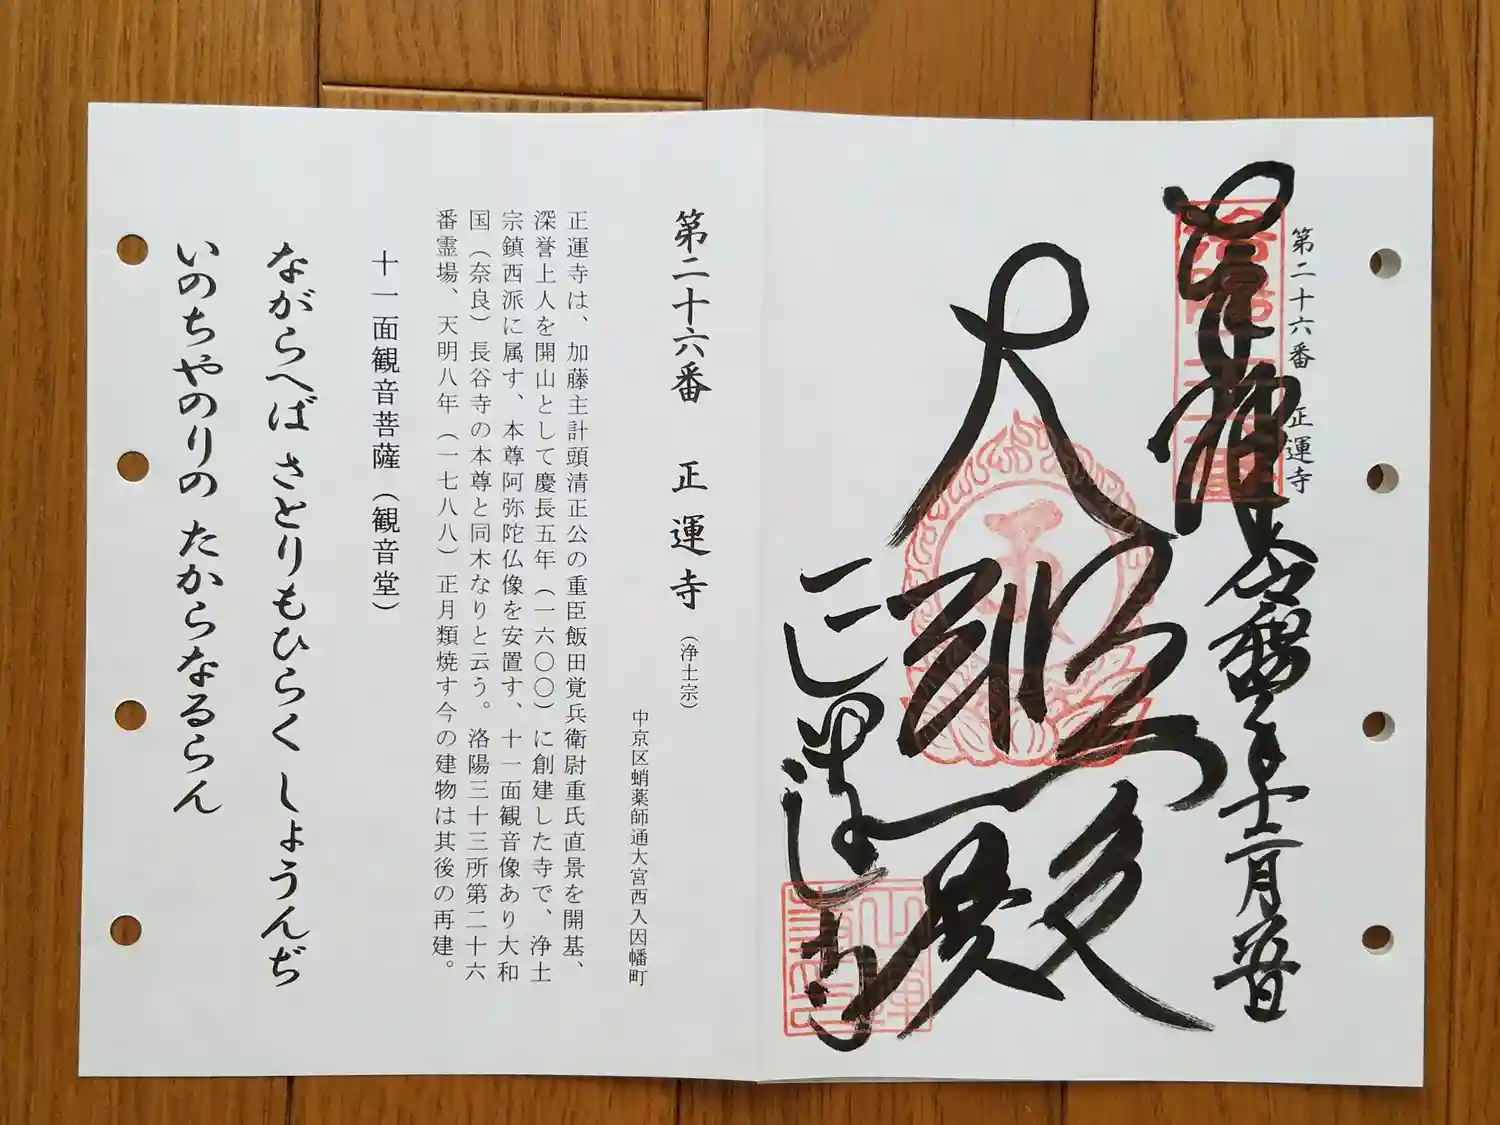 第二十六番 正運寺
奉拝
大悲殿
正運寺
第二十六番 正運寺（浄土宗）
中京区蛸薬師通大宮西入因幡町
正運寺は、加藤主計頭清正公の重臣飯田覚兵衛尉重氏直景を開基、
深誉上人を開山として慶長五年（一六〇〇）に創建した寺で、浄土
宗鎮西派に属す、本尊阿弥陀仏像を安置す、十一面観音像あり大和
国（奈良）長谷寺の本尊と同木なりと云う。洛陽三十三所第二十六
番霊場、天明八年（一七八八）正月類焼す今の建物は其後の再建。
十一面観音菩薩（観音堂）
ながらへば さとりもひらく しょうんぢ
いのちやのりの たからなるらん